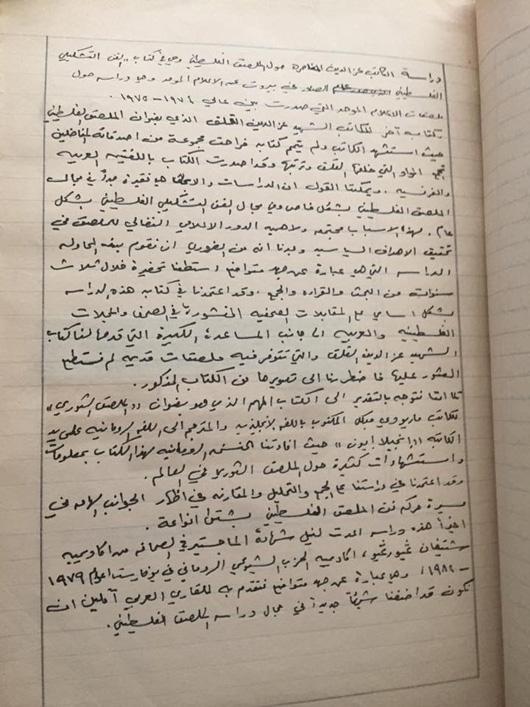 دراسة الكاتب عز الدين المناصرة حول الملصق الفلسطيني وهي في كتاب "الفن التشكيلي
الفلسطيني" الصادر في بيروت عن الاعلام الموحد وهو دراسة حول
ملصقات الاعلام الموحد التي صدرت بين عامي ١٩٧٤ - ١٩٧٥.
وكتاب آخر للكاتب الشهيد عز الدين القلق الذي بعنوان الملصق الفلسطيني
حيث استشهد الكاتب ولم يتم كتابه فراحت مجموعة من اصدقائه المناضلين
بجمع المواد التي خلفها القلق وترتيبها وقد صدرت الكتاب باللغتين العربية
والفرنسية. ويمكننا القول ان الدراسات والابحاث فقيرة جداً في مجال
الملصق الفلسطيني بشكل خاص وفي مجال الفن التشكيلي الفلسطيني بشكل
عام. لهذه الاسباب مجتمعه ولاهمية الدور الاعلامي النضالي للملصق في
تحقيق الاهداف السياسيه وجدنا انه من الضروري ان نقوم بهذه المحاوله
الدراسه التي هي عبارة عن جهد متواضع استطعنا تحضيره خلال ثلاث
سنوات من البحث والقراءه والجمع. وقد اعتمدنا في كتابه هذه الدراسه
بشكل اساسي على المقابلات الصحفيه المنشورة في الصحف والمجلات
الفلسطينيه والعربيه الى جانب المساعدة الكبيرة التي قدمها لنا كتاب
الشهيد عز الدين القلق والتي تتوفر فيه ملصقات قديمه لم نستطع
العثور عليها فاضطررنا الى تصويرها من الكتاب المذكور.
كما اننا نتوجه بالتقدير الى الكتاب المهم الذي هو بعنوان "الملصق الثوري"
للكاتب ماريووي ميكل المكتوب باللغه الانجليزيه والمترجم الى اللغه الرومانيه على يد
الكاتبه "انجيلا ايون" حيث افادتنا النسخه الرومانيه لهذا الكتاب بمعلومات
واستشهادات كثيرة حول الملصق الثوري في العالم.
وقد اعتمدنا في دراستنا على الجمع والتحليل والمقارنه في اظهار الجوانب الهامه في
مسيرة حركة فن الملصق الفلسطيني بشتى انواعه.
اخيراً هذه دراسه اعدت لنيل شهادة الماجستير في الصحافه من اكاديمية
شتيفان غيورغيو اكاديميه الحزب الشيوعي الروماني في بوخارست اعوام ١٩٧٩
- ١٩٨٢، وهي عبارة عن جهد متواضع نتقدم به للقارئ العربي آملين ان
نكون قد اضفنا شيئاً جديداً في مجال دراسه الملصق الفلسطيني.